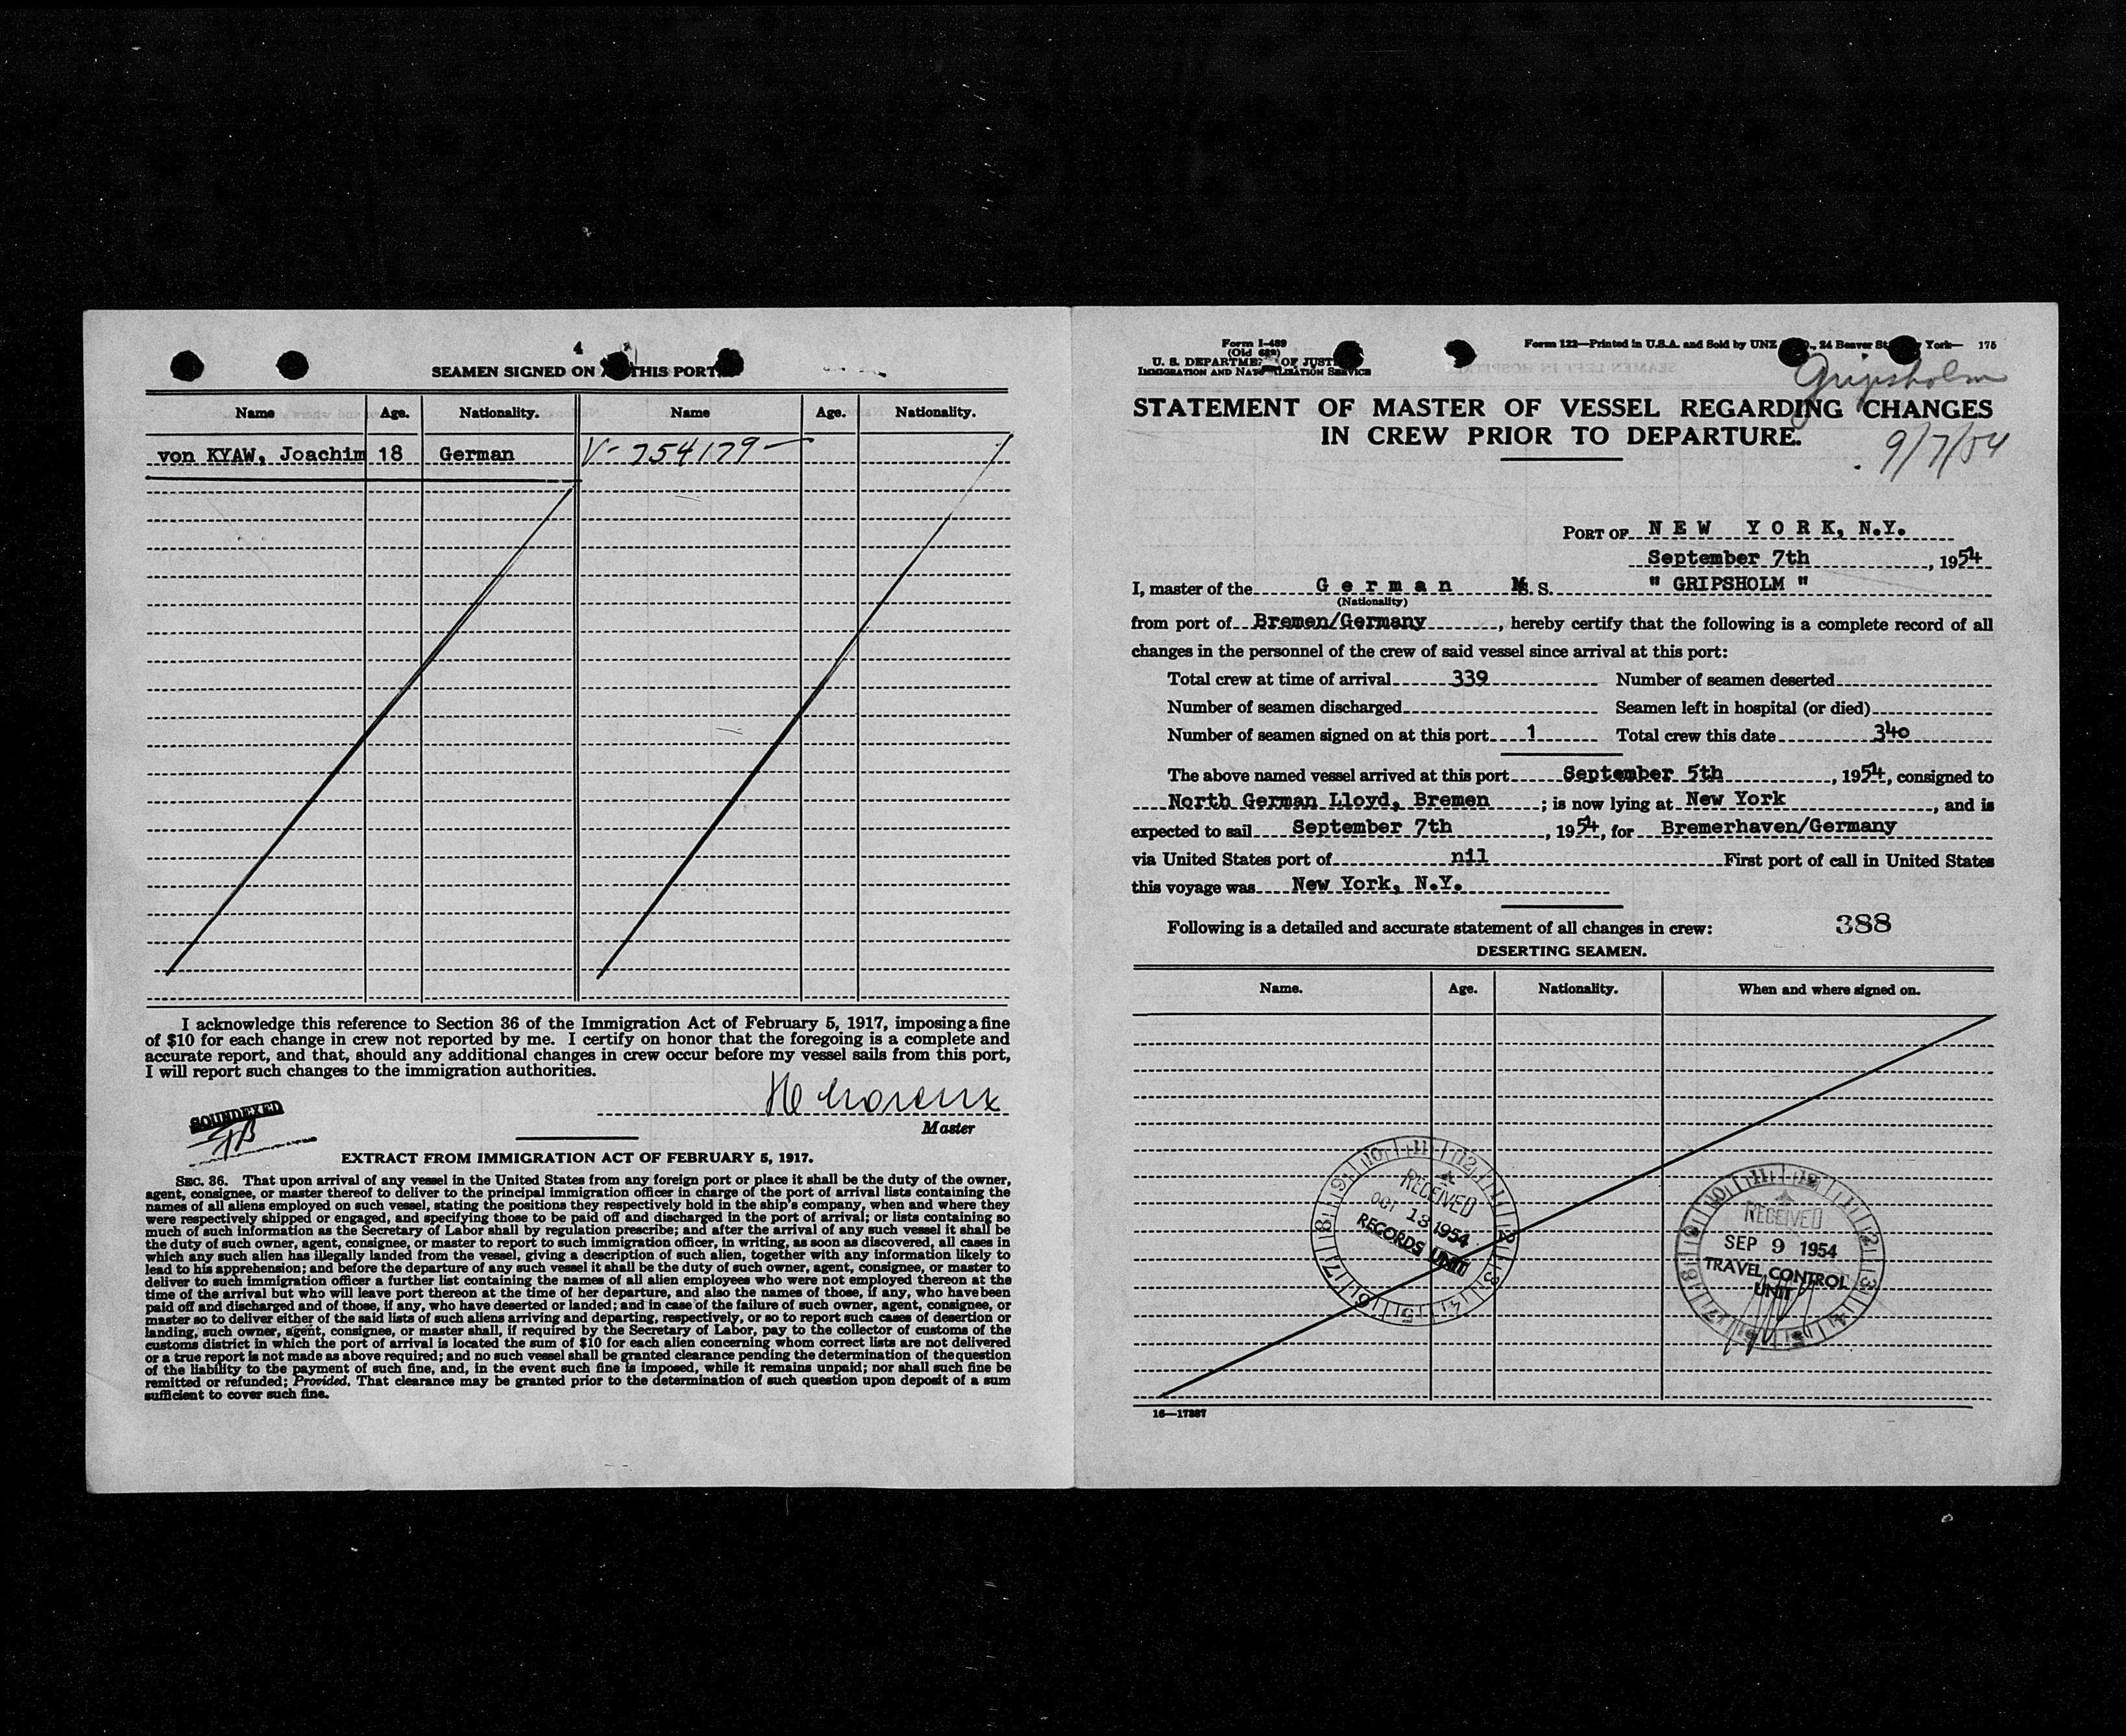 4
SEAMEN SIGNED ON THIS PORT
Name Age. Nationality. Name Age. Nationality.
von KYAW, Joachim 18 German V-754179-
I acknowledge this reference to Section 36 of the Immigration Act of February 5, 1917, imposing a fine
of $10 for each change in crew not reported by me. I certify on honor that the foregoing is a complete and
accurate report, and that, should any additional changes in crew occur before my vessel sails from this port,
I will report such changes to the immigration authorities.
Master
SOUNDEXED
EXTRACT FROM IMMIGRATION ACT OF FEBRUARY 5, 1917.
SEC. 36. That upon arrival of any vessel in the United States from any foreign port or place it shall be the duty of the owner,
agent, consignee, or master thereof to deliver to the principal immigration officer in charge of the port of arrival lists containing the
names of all aliens employed on such vessel, stating the positions they respectively hold in the ship's company, when and where they
were respectively shipped or engaged, and specifying those to be paid off and discharged in the port of arrival; or lists containing so
much of such information as the Secretary of Labor shall by regulation prescribe; and after the arrival of any such vessel it shall be
the duty of such owner, agent, consignee, or master to report to such immigration officer, in writing, as soon as discovered, all cases in
which any such alien has illegally landed from the vessel, giving a description of such alien, together with any information likely to
lead to his apprehension; and before the departure of any such vessel it shall be the duty of such owner, agent, consignee, or master to
deliver to such immigration officer a further list containing the names of all alien employees who were not employed thereon at the
time of the arrival but who will leave port thereon at the time of her departure, and also the names of those, if any, who have been
paid off and discharged and of those, if any, who have deserted or landed; and in case of the failure of such owner, agent, consignee, or
master so to deliver either of the said lists of such aliens arriving and departing, respectively, or so to report such cases of desertion or
landing, such owner, agent, consignee, or master shall, if required by the Secretary of Labor, pay to the collector of customs of the
customs district in which the port of arrival is located the sum of $10 for each alien concerning whom correct lists are not delivered
or a true report is not made as above required; and no such vessel shall be granted clearance pending the determination of the question
of the liability to the payment of such fine, and, in the event such fine is imposed, while it remains unpaid; nor shall such fine be
remitted or refunded; Provided, That clearance may be granted prior to the determination of such question upon deposit of a sum
sufficient to cover such fine.
Form I-489
(Old 689)
U. S. DEPARTMENT OF JUSTICE
IMMIGRATION AND NATURALIZATION SERVICE
Form 122—Printed in U.S.A. and Sold by UNZ 24 Beaver St York— 175
Gripsholm
STATEMENT OF MASTER OF VESSEL REGARDING CHANGES
IN CREW PRIOR TO DEPARTURE.
9/7/54
PORT OF NEW YORK, N.Y.
September 7th, 1954
I, master of the German M.S. " GRIPSHOLM "
(Nationality)
from port of Bremen/Germany, hereby certify that the following is a complete record of all
changes in the personnel of the crew of said vessel since arrival at this port:
Total crew at time of arrival 339 Number of seamen deserted
Number of seamen discharged Seamen left in hospital (or died)
Number of seamen signed on at this port 1 Total crew this date 340
The above named vessel arrived at this port September 5th, 1954, consigned to
North German Lloyd, Bremen; is now lying at New York, and is
expected to sail September 7th, 1954, for Bremerhaven/Germany
via United States port of nil First port of call in United States
this voyage was New York, N.Y.
Following is a detailed and accurate statement of all changes in crew: 388
DESERTING SEAMEN.
Name. Age. Nationality. When and where signed on.
RECEIVED
OCT 13 1954
RECORDS UNIT
RECEIVED
SEP 9 1954
TRAVEL CONTROL
UNIT
16—17287